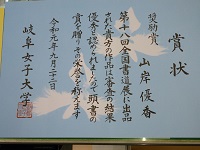 賞状
奨励賞
山岸優香
第十八回全国書道展に出品
された貴方の作品は審査の結果
優秀と認められましたので頭書の
賞を贈りその栄誉を称えます
令和元年九月二十二日
岐阜女子大学